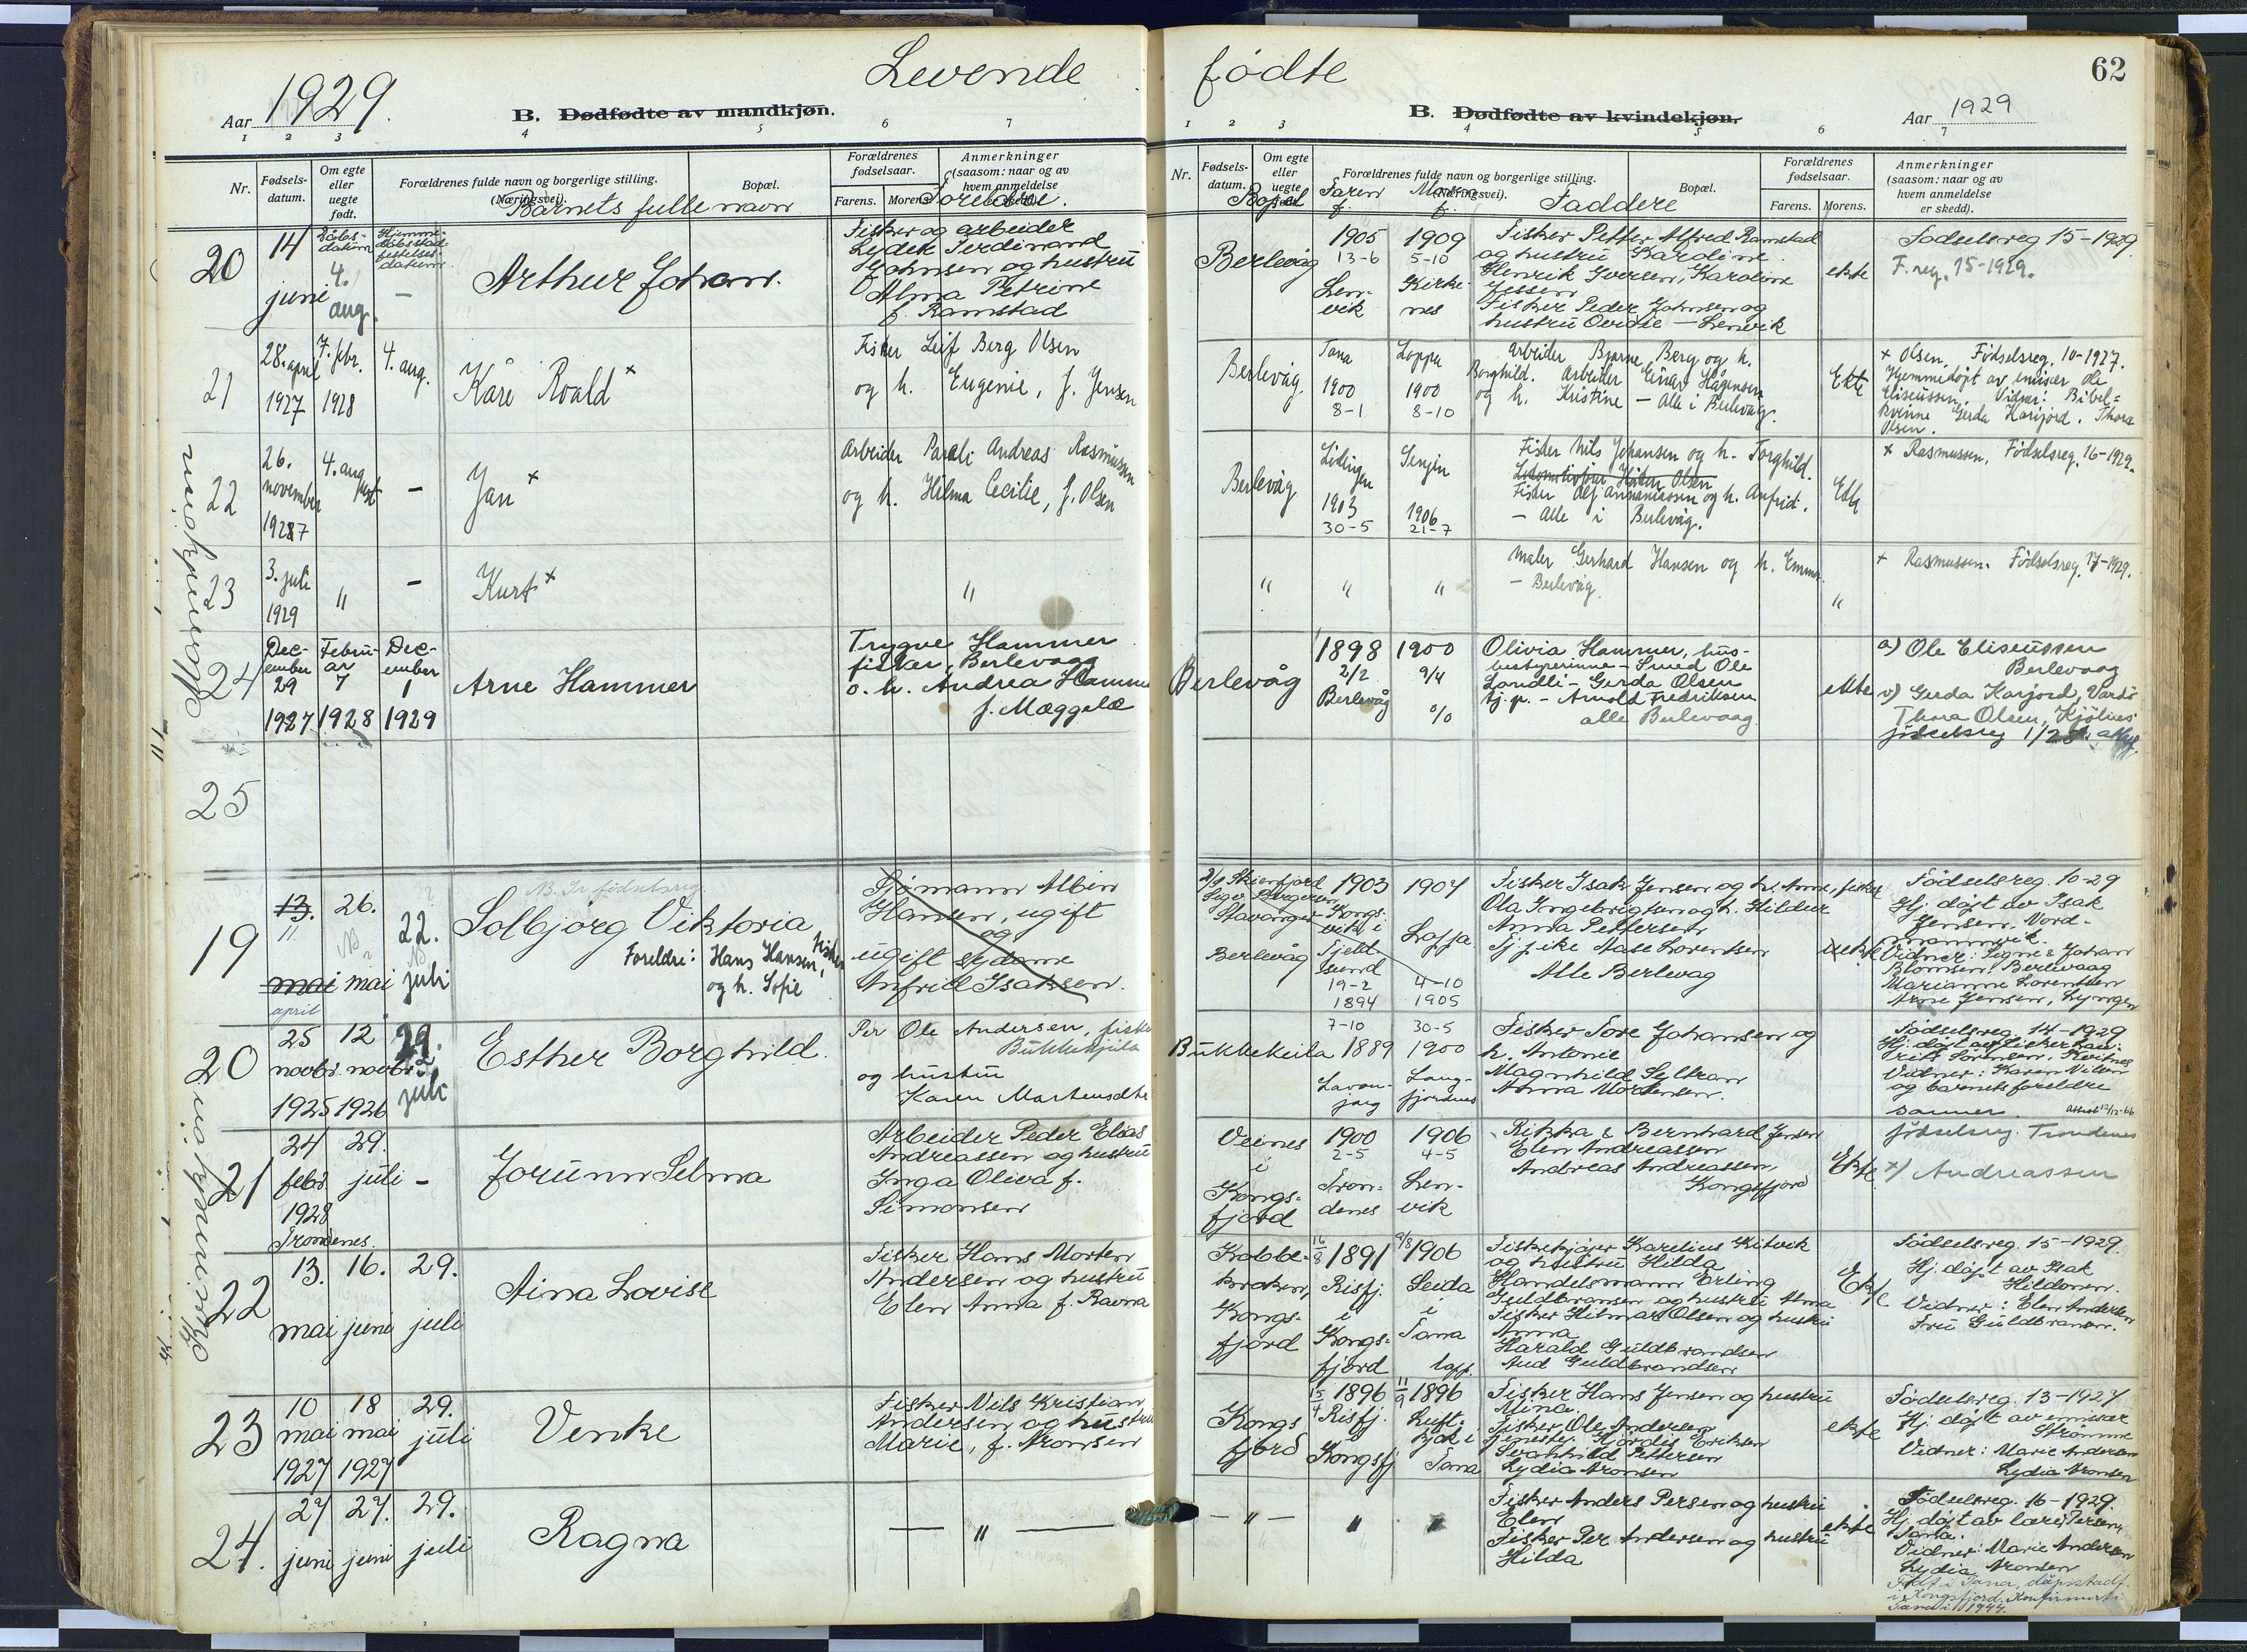 Levende fødte
62
Aar 1929.
B. Dødfødte av mandkjøn.
B. Dødfødte av kvindekjøn.
Aar 1929
1 2 3 4 5 6 7
1 2 3 4 5 6 7
Nr.
Fødsels-
datum.
Om egte
eller
uegte
født.
Forældrenes fulde navn og borgerlige stilling.
(Næringsvei).
Barnets fulle navn
Bopæl.
Forældrenes
fødselsaar.
Farens. Morens.
Anmerkninger
(saasom: naar og av
hvem anmeldelse
er skedd).
Foreldre.
Nr.
Fødsels-
datum.
Om egte
eller
uegte
født.
Bopel
Forældrenes fulde navn og borgerlige stilling.
(Næringsvei).
Faren f.
Moren f.
Faddere
Bopæl.
Forældrenes
fødselsaar.
Farens. Morens.
Anmerkninger
(saasom: naar og av
hvem anmeldelse
er skedd).
Dåbs-
datum
Hjemme-
datum
Mannkjønn
20
14
juni
4.
aug.
–
Arthur Johan.
Fisker og arbeider
Lydek Ferdinand
Johnsen og hustru
Alma Petrine
f. Ramstad
Berlevåg
1905
13-6
Len-
vik
1909
5-10
Kirke-
nes
Fisker Petter Alfred Ramstad
og hustru Kardine.
Henrik Iversen, Karoline
Jessen
Fisker Peder Johnsen og
hustru Ovidie – Lenvik
ekte
Fødselsreg 15-1929.
F. reg. 15-1929.
21
28. april
1927
7. febr.
1928
4. aug.
Kåre Roald x
Fisker Leif Berg Olsen
og h. Eugenie, f. Jensen
Berlevåg
Tana
1900
8-1
Loppa
1900
8-10
Arbeider Bjarne Berg og h.
Borghild. Arbeider Einar Hågensen
og h. Kristine – Alle i Berlevåg.
Ekte
x Olsen, Fødselsreg. 10-1927.
Hjemmedøpt av emisær Ole
Eliseussen. Vidner: Bibel-
kvinne Gerda Karijord. Thora
Olsen.
22
26.
november
4. aug.
–
Jan x
Arbeider Pareli Andreas Rasmussen
og h. Hilma Cecilie, f. Olsen
Berlevåg
Lødingen
1903
30-5
Senjen
1906
21-7
Fisker Nils Johansen og h. Torghild.
Fisker Alf Annaniassen og h. Anfrid.
– Alle i Berlevåg.
Ekte
x Rasmussen, Fødselsreg. 16-1929.
23
3. juli
1929
"
–
Kurt x
"
"
"
"
Maler Gerhard Hansen og h. Emma
– Berlevåg.
"
x Rasmussen. Fødselsreg. 17-1929.
24
Dec-
ember
29
1927
Febru-
ar
7
1928
Dec-
ember
1
1929
Arne Hammer
Trygve Hammer
fisker, Berlevaag
o. h. Andrea Hammer
f. Mæggelæ
Berlevåg
1898
2/2
Berlevåg
1900
9/4
%
Olivia Hammer, hus-
bestyrerinne – Smed Ole
Landli – Gerda Olsen
tj.p. – Arnold Fredriksen
alle Berlevaag
ekte
a) Ole Eliseussen
Berlevaag
v) Gerda Karjord, Vardø
Thora Olsen, Kjølnes
fødselsreg 1/28.
25
Kvinnekjønn
19
13.
11
mai
april
26.
mai
22.
juli
Solbjørg Viktoria
Foreldre: Hans Hansen, fisker
og h. Sofie
Sjømann Albin
Hansen, ugift
og
ugift sydame
Anfrid Isaksen.
Stavanger
Berlevåg
1903
Kongs-
vik i
Tjeld-
sund
19-2
1894
1904
Loppa
4-10
1905
Fisker Isak Jensen og h. Anne, fisker
Ola Ingebrigtsen og h. Hildur
Anna Pettersen
Tj.pike Aase Lorentsen
Alle Berlevag
uekte
Fødselsreg. 10-29
Hj. døpt av Isak
Jensen, Nord-
mannvik.
Vidner: Signe & Johan
Blomsen, Berlevaag
Marianne Lorentsen
Arne Jensen, Lyngen
20
25
novbr.
1925
12
novbr.
1926
29.
juli
Esther Borghild.
Per Ole Andersen, fisker
Bukkekjeila
og hustru
Karen Martensdtr
Bukkekeila
7-10
1889
Lavan-
jarg
30-5
1900
Lang-
fjordnes
Fisker Tore Johansen og
h. Antonie
Magnhild Seltran
Anna Mortensen.
Fødselsreg. 14-1929
Vidner: Karen Nilsen
og barnets foreldre
sammen.
21
24
febr.
1928
Trondenes.
29.
juli
–
Jorunn Selma
Arbeider Peder Elias
Andreassen og hustru
Inga Oliva f.
Simonsen
Veines
i
Kongs-
fjord
1900
2-5
Tron-
denes
1906
4-5
Len-
vik
Rikka & Bernhard Jensen
Elen Andreassen
Andreas Andreassen,
Kongsfjord
Ekte
fødselsreg. Trondenes
x) Andreassen
22
13.
mai
16.
juni
29.
juli
Aina Lovise
Fisker Hans Morten
Andersen og hustru
Elen Anna f. Ravna
Kobbe-
kroken,
Kongs-
fjord
16/8 1891
Risfj.
i
Kongs-
fjord
9/8 1906
Seida
i
Tana
lapp.
Fiskekjøper Karelius Kitvek
og hustru Hilda
Handelsmann Erling
Guldbransen og hustru Alma
Fisker Hilmar Olsen og hustru
Anna
Harald Guldbrandsen
Aud Guldbrandsen
Ekte
Fødselsreg. 15-1929.
Hj. døpt av Isak
Hildonen.
Vidner: Elen Andersen
Fru Guldbransen.
23
10
mai
1927
18
mai
1927
29.
juli
Venke
Fisker Nils Kristian
Andersen og hustru
Marie, f. Aronsen
Kongs
fjord
15/4 1896
Risfj.
i
Kongsfj
11/9 1896
Luft-
jok i
Tana
Fisker Hans Jensen og hustru
Mina.
Fisker Ole Andersen
Tjeneste. Hjørdis Eriksen
Svanhild Pettersen
Lydia Aronsen
ekte
Fødselsreg. 13-1927
Hj. døpt av emisær
Strømme
Vidner: Marie Andersen
Lydia Aronsen
24.
27
juni
27.
juni
29.
juli
Ragna
— " —
– " –
"
"
Fisker Anders Persen og hustru
Elen
Fisker Per Andersen og hustru
Hilda
ekte
Fødselsreg. 16-1929.
Hj. døpt av lærer Persen,
Tana.
Vidner: Marie Andersen
Lydia Aronsen
Født i Tana, døpt stadf.
i Kongsfjord. Konfirmert i
Tana i 1944.